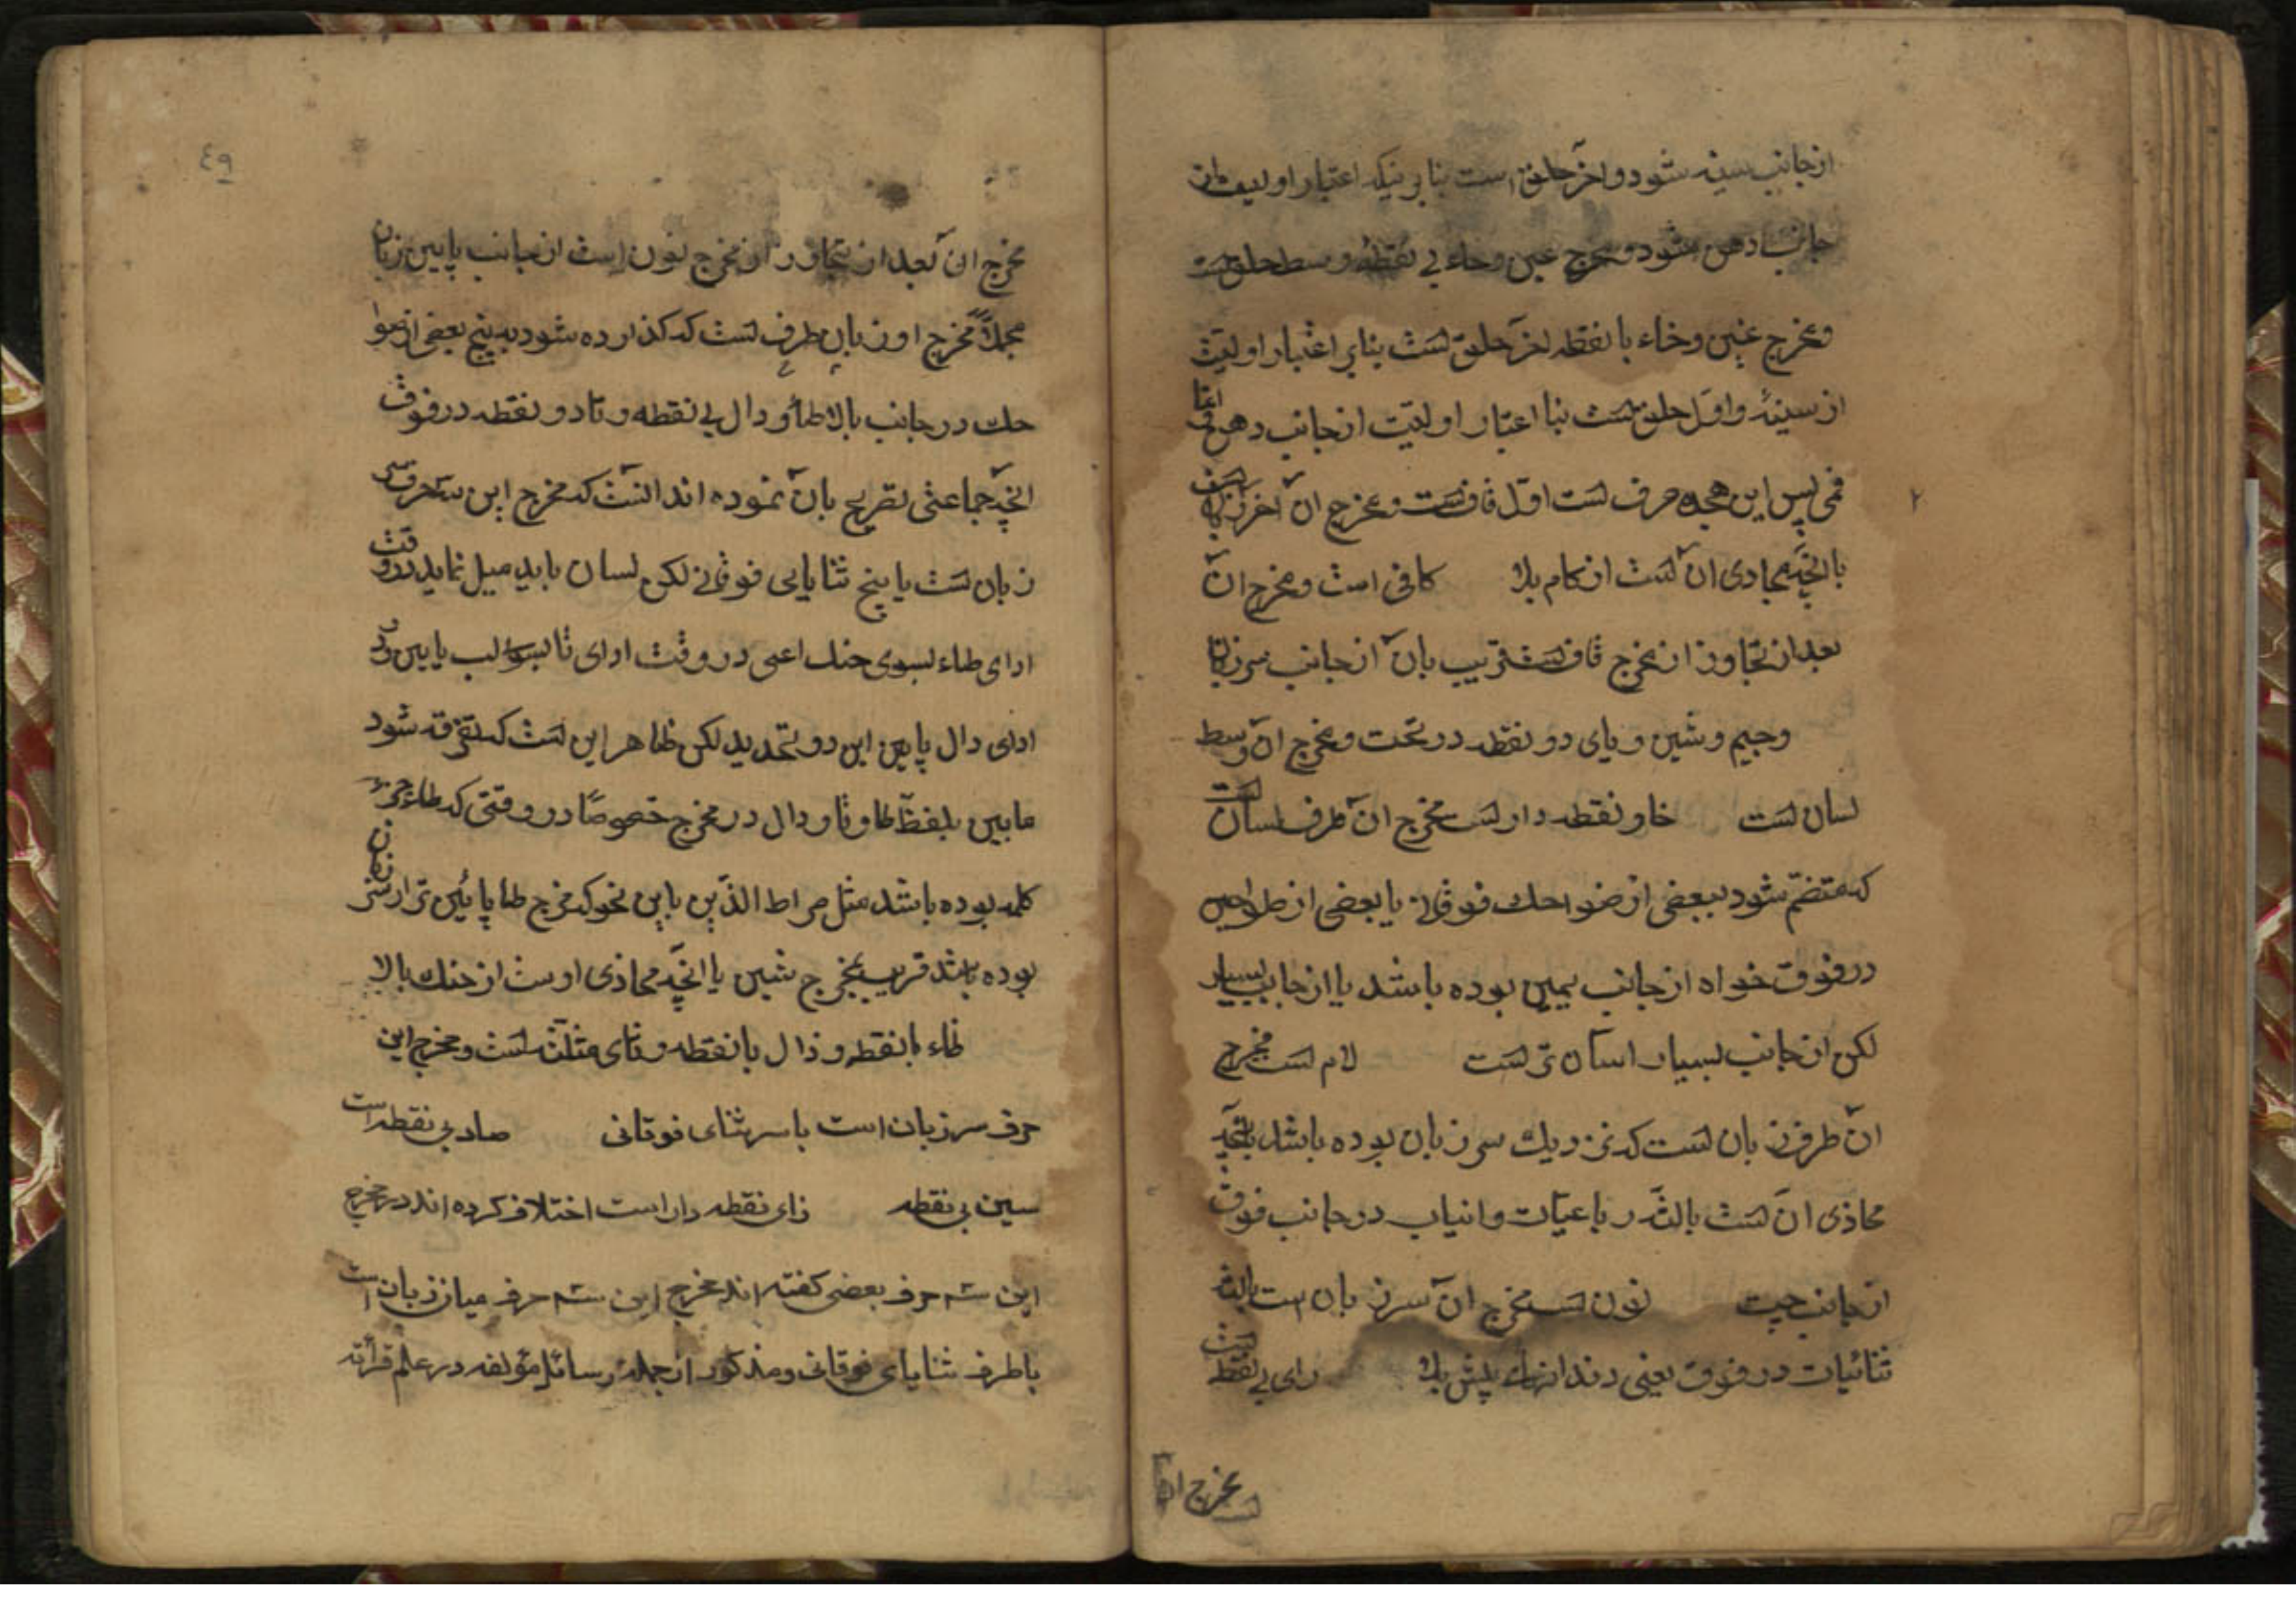 از جانب سینه شود و اخر حلق است بنابرینکه اعتبار اولیت از
جانب دهن شود و مخرج عین و حاء بی نقطه وسط حلق است
و مخرج غین و خاء با نقطه اخر حلق لست بنابر اعتبار اولیت
از سینه و اول حلق لست بنا اعتبار اولیت از جانب دهن و اما
فمی پس این هجده حرف لست اول قاف لست و مخرج ان اخر زبان لست
۲
با انچه محاذی ان لست از کام بالا کافی است و مخرج ان
بعد از تجاوز از مخرج قاف لست قریب بان از جانب سر زبان
وجیم و شین و یای دو نقطه در تحت و مخرج ان وسط
لسان لست خاو نقطه دار لست مخرج ان طرف لسان لست
که منضم شود ببعضی از ضواحک فوقانی یا بعضی از طواحین
در فوق خواه از جانب یمین بوده باشد یا از جانب یسار
لکن از جانب یسار اسان تر لست لام لست مخرج
ان طرف زبان لست که نزدیک سر زبان بوده باشد بانچه
محاذی ان لست بالثه رباعیات و انیاب در جانب فوق
از جانب چپ نون لست مخرج ان سر زبان است بالثه
ثنائیات در فوق یعنی دندانهای پیش رای بی نقطه لست
مخرج ان
٤٩
مخرج ان بعد از تجاوز از مخرج نون است از جانب پایین زبان
مجملا مخرج او زبان طرف لست که کذارده شود به بیخ بعضی از
حنک در جانب بالا طا و دال بی نقطه و تا دو نقطه در فوق
انچه جماعتی تصریح بان نموده اند انست که مخرج این سه حرف
زبان لست با بیخ ثنایای فوقانی لکن لسان باید میل نماید در وقت
ادای طاء بسوی حنک اعلی در وقت ادای تا بسوی لب پایین و در
ادای دال پایین این دو تحدید لکن ظاهر این لست که تفرقه شود
مابین تلفظ طا و تا و دال در مخرج خصوصا در وقتی که طاء جزء
کلمه بوده باشد مثل صراط الذین باین نحو که مخرج طا پائین تر از سر زبان
بوده باشد قریب بمخرج شین با انچه محاذی اوست از حنک بالا
ظاء با نقطه و ذال با نقطه و ثای مثلثه لست و مخرج این
حرف سر زبان است با سر ثنای فوقانی صاد بی نقطه است
سین بی نقطه زای نقطه دار است اختلاف کرده اند در مخرج
این سه حرف بعضی کفته اند مخرج این سه حرف میان زبان است
با طرف ثنایای فوقانی و مذکور از جمله رسائل مؤلفه در علم قرائه